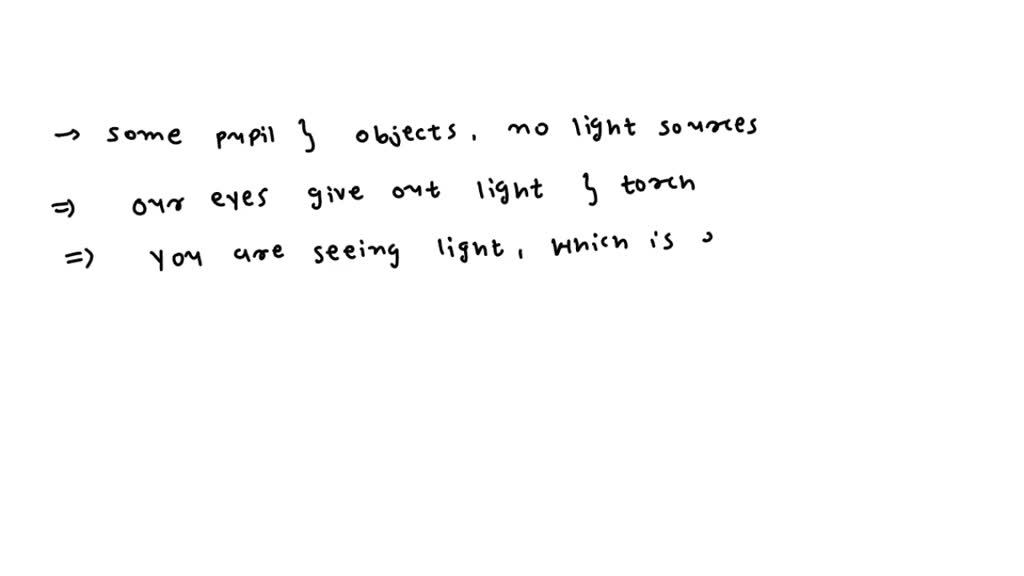 → some pupil } objects, no light sources
⇒ our eyes give out light } torch
⇒ you are seeing light, which is